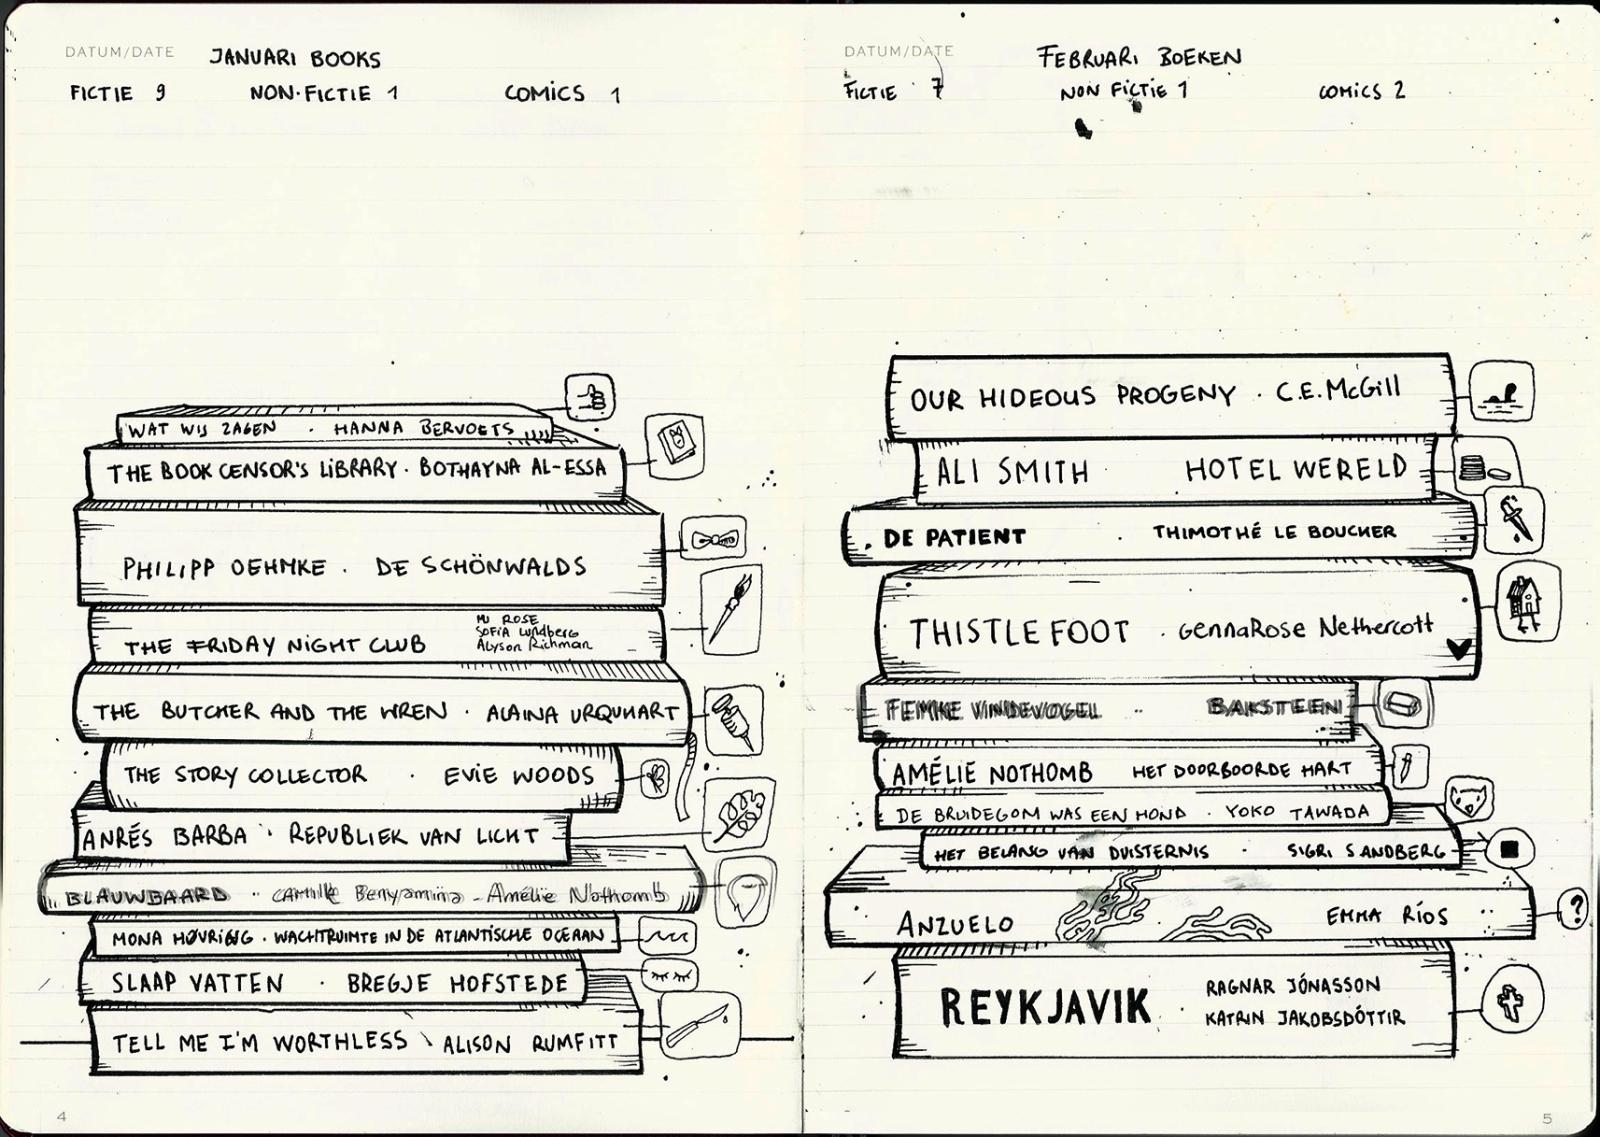 DATUM/DATE JANUARI BOOKS
FICTIE 9 NON-FICTIE 1 COMICS 1
WAT WIJ ZAGEN · HANNA BERVOETS
THE BOOK CENSOR'S LIBRARY · BOTHAYNA AL-ESSA
PHILIPP OEHMKE · DE SCHÖNWALDS
THE FRIDAY NIGHT CLUB
MJ ROSE
SOFIA Lundberg
Alyson Richman
THE BUTCHER AND THE WREN · ALAINA URQUHART
THE STORY COLLECTOR · EVIE WOODS
ANRÉS BARBA · REPUBLIEK VAN LICHT
BLAUWBAARD · Camille Benyamina - Amélie Nothomb
MONA HØVRING · WACHTRUIMTE IN DE ATLANTISCHE OCEAAN
SLAAP VATTEN · BREGJE HOFSTEDE
TELL ME I'M WORTHLESS \ ALISON RUMFITT
4
DATUM/DATE FEBRUARI BOEKEN
FICTIE 7 NON FICTIE 1 COMICS 2
OUR HIDEOUS PROGENY · C.E. McGill
ALI SMITH HOTEL WERELD
DE PATIENT · THIMOTHÉ LE BOUCHER
THISTLEFOOT · GennaRose Nethercott
FEMKE VINDEVOGEL ·· BAKSTEEN
AMÉLIE NOTHOMB HET DOORBOORDE HART
DE BRUIDEGOM WAS EEN HOND · YOKO TAWADA
HET BELANG VAN DUISTERNIS · SIGRI SANDBERG
ANZUELO EMMA RÍOS
?
REYKJAVIK · RAGNAR JÓNASSON
KATRIN JAKOBSDÓTTIR
5